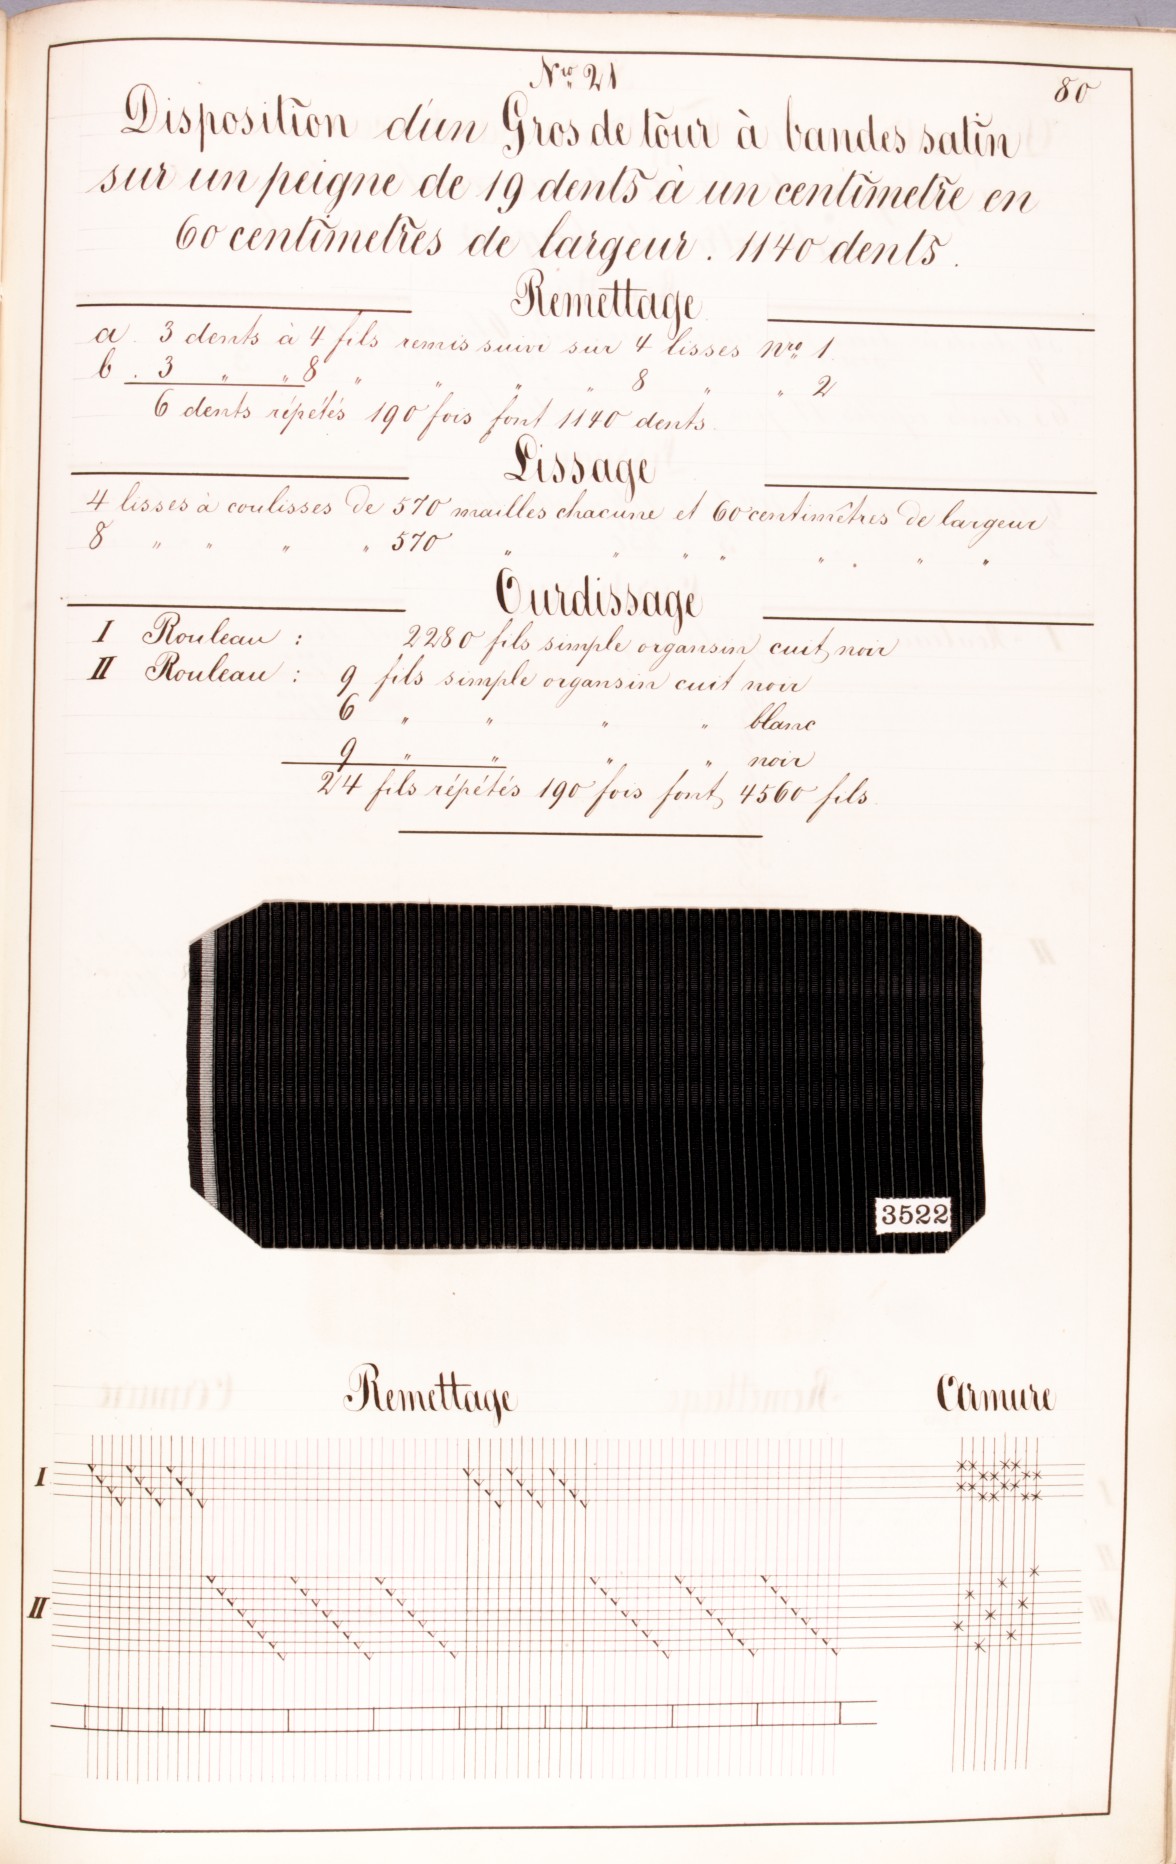 Nro 21
80
Disposition d'un Gros de tour à bandes satin
sur un peigne de 19 dents à un centimetre en
60 centimetres de largeur. 1140 dents.
Remettage
a. 3 dents à 4 fils remis suivi sur 4 lisses nro 1.
b. 3 " " 8 " " " " 8 " " 2
6 dents répétés 190 fois font 1140 dents.
Lissage
4 lisses à coulisses de 570 mailles chacune et 60 centimètres de largeur
8 " " " " 570 " " " " " " " "
Ourdissage
I Rouleau : 2280 fils simple organsin cuit noir
II Rouleau : 9 fils simple organsin cuit noir
6 " " " " blanc
9 " " " " noir
24 fils répétés 190 fois font 4560 fils.
3522
Remettage
Armure
I
II